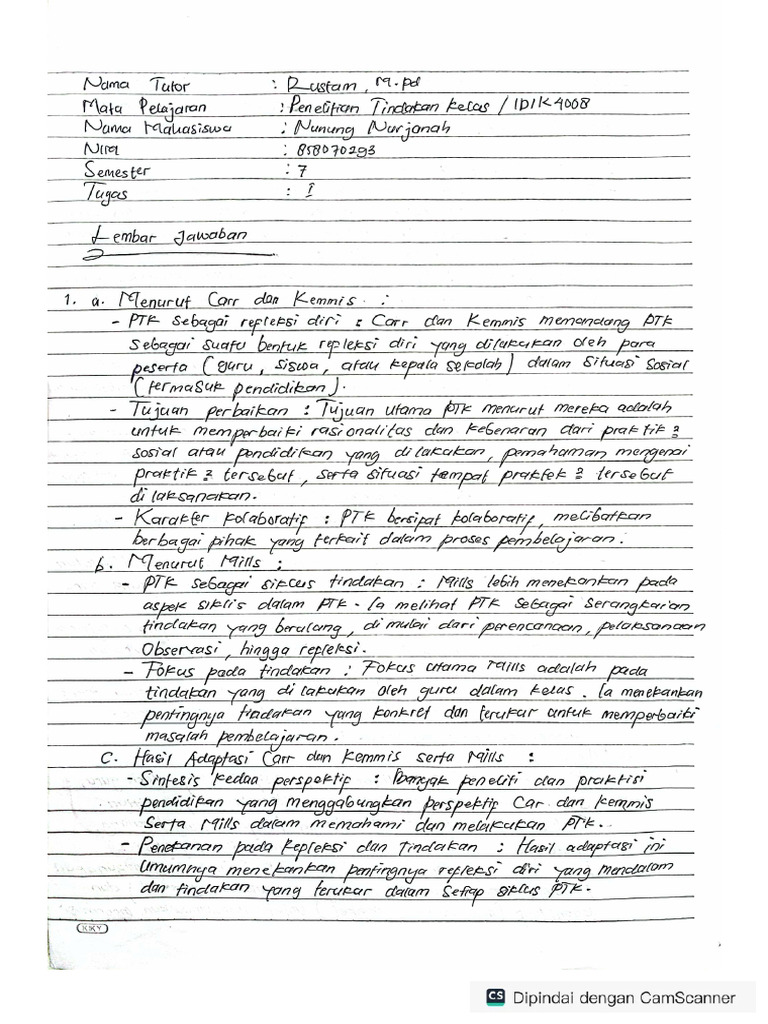 Nama Tutor : Rustam, M.pd
Mata Pelajaran : Penelitian Tindakan Kelas / IDIK4008
Nama Mahasiswa : Nunung Nurjanah
Nim : 858070293
Semester : 7
Tugas : I
Lembar Jawaban
1. a. Menurut Carr dan Kemmis :
- PTK sebagai repleksi diri : Carr dan Kemmis memandang PTK
sebagai suatu bentuk repleksi diri yang dilakukan oleh para
peserta (guru, siswa, atau kepala sekolah) dalam situasi sosial
(termasuk pendidikan).
- Tujuan perbaikan : Tujuan utama PTK menurut mereka adalah
untuk memperbaiki rasionalitas dan kebenaran dari praktik2
sosial atau pendidikan yang dilakukan, pemahaman mengenai
praktik2 tersebut, serta situasi tempat praktek2 tersebut
dilaksanakan.
- Karakter kolaboratif : PTK bersipat kolaboratif, melibatkan
berbagai pihak yang terkait dalam proses pembelajaran.
b. Menurut Mills :
- PTK sebagai siklus tindakan : Mills lebih menekankan pada
aspek siklis dalam PTK. Ia melihat PTK sebagai serangkaian
tindakan yang berulang, di mulai dari perencanaan, pelaksanaan
Observasi, hingga repleksi.
- Fokus pada tindakan : Fokus utama Mills adalah pada
tindakan yang di lakukan oleh guru dalam kelas. Ia menekankan
pentingnya tindakan yang konkret dan terukur untuk memperbaiki
masalah pembelajaran.
C. Hasil Adaptasi Carr dan Kemmis serta Mills :
- Sintesis kedua perspektif : Banyak peneliti dan praktisi
pendidikan yang menggabungkan perspektif Car dan kemmis
Serta Mills dalam memahami dan melakukan PTK.
- Penekanan pada Repleksi dan Tindakan : Hasil adaptasi ini
Umumnya menekankan pentingnya refleksi diri yang mendalam
dan tindakan yang terukur dalam setiap siklus PTK.
KIKY
CS Dipindai dengan CamScanner